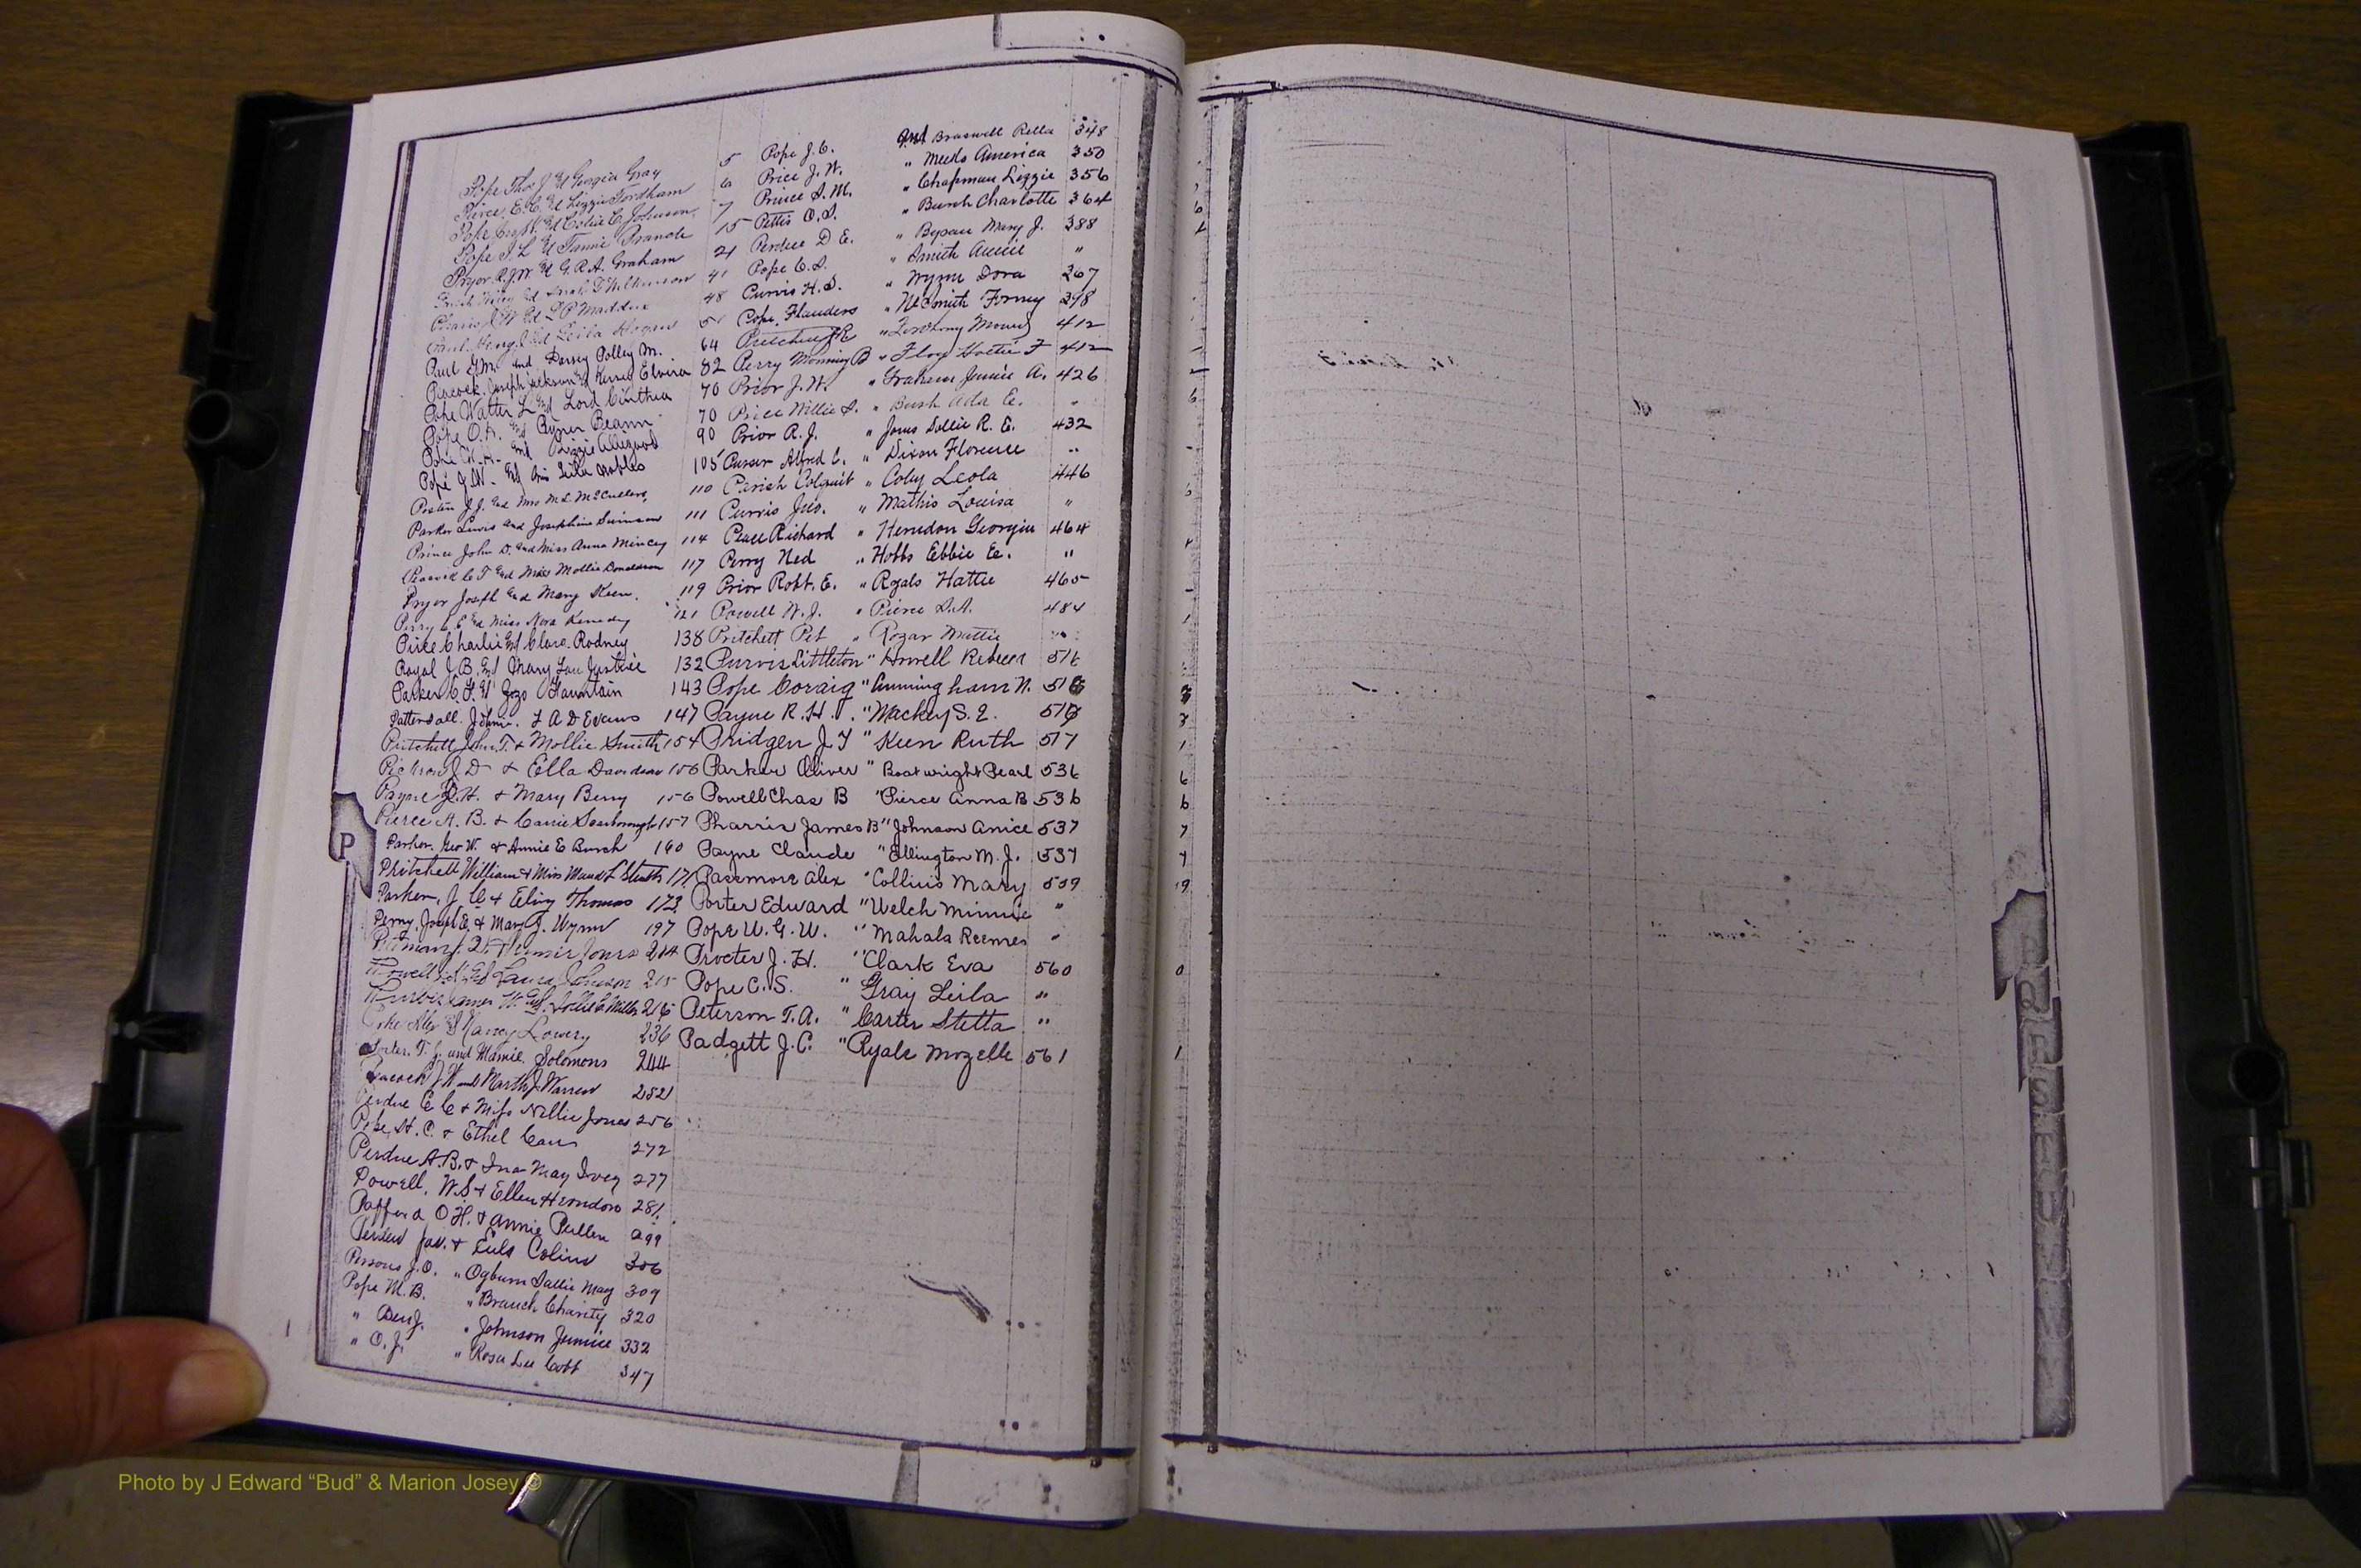 Pope Thos J Ed Georgia Gray 5
Pierce, E. C. Ed Lizzie Fordham 6
Johnson 7
Pope J. L Ed Fannie Branch 15
Pryor R. J. W. Ed G. R. A. Graham 21
Wilkinson 41
Ed Maddux 48
Paul Ed Leila Hogan 51
Paul and Dorsey Polley M. 64
Peacock, Joseph Jackson Ed Elvira 82
Pope Walter L Ed Lord Cinthia 70
Pope O. A. Ed 70
Pope W. H. Ed Lizzie Alligood 90
Pope J. W. Ed Leila Nobles 105
J. J. Ed Mrs M. L. McCullers, 110
Parker Lewis and Josephine Swinson 111
Prince John D. and Miss Anna Mincey 114
C T and Miss Mollie Donaldson 117
Pryor Joseph and Mary Keen. 119
Perry C. E Ed Miss Nora Kennedy 121
Charlie Ed Clara Rodney 138
Royal J. B. Ed Mary Lou Justice 132
Parker C. F. Ed Zozo Fountain 143
Pattersall. Johnie. & A D Evans 147
Pritchett John. T. & Mollie Smith 154
J. D & Ella Davidson 156
Payne R. H. & Mary Berry 156
Pierce A. B. & Carrie Scarborough 157
Parker. Geo W. & Annie E Burch 160
Pritchett William & Miss Maud L 171
Parker, J. C. & Thomas 173
Perry, Joseph E. & Mary J. Wynn 197
Jones 214
Powell Ed Laura Johnson 215
James W. Ed. Miller 216
Poke Alex Ed Nancy Lowery 236
Porter. T. J. and Mamie Solomons 244
Peacock J. W. and Martha J. Warren 252
Perdue E C & Miss Nellie Jones 256
Pope, H. C. & Ethel 272
Perdue A. B. & Ina May Ivey 277
Powell, W. S & Ellen Herndon 281
O H. & Annie Pullen 299
Jas. & Eula Colins 306
Persons J. O. " Ogburn Sallie May 309
Pope M. B. " Branch Charity 320
" Benj. " Johnson Junice 332
" O. J. " Rosa Lee Cobb 347
Pope J. C. and Braswell Rella 348
Price J. W. " Meeks America 350
Prince S. M. " Chapman Lizzie 356
Pettis O. S. " Burch Charlotte 364
Perdue D E. " Mary J. 388
Pope C. S. " Smith "
Purvis H. S. " Wynn Dora 267
Pope, Flanders " NeSmith 398
Pritchett " 412
Perry Morning B " Floyd Hattie F 412
Prior J. W. " Graham Jennie A. 426
Price Willie S. " Bush Ada E. "
Prior R. J. " Jones Sollie R. E. 432
Alfred C. " Dixon Florence "
Parish Colquit " Coby Leola 446
Purvis Jno. " Mathis Louisa "
Richard " Herndon Georgia 464
Perry Ned " Hobbs Ebbie E. "
Prior Robt. E. " Royals Hattie 465
Powell W. J. " Pierce S. A. 484
Pritchett Pet " Rozar Mattie "
Purvis Littleton " Howell Rebecca 516
Pope " Cunningham N. 516
Payne R. H. " Mackey S. E. 517
Pridgen J. T " Keen Ruth 517
Parker Oliver " Boatwright Pearl 536
Powell Chas B " Pierce Anna B 536
Pharris James B " Johnson Anice 537
Payne Claude " Ellington M. J. 537
Passmore Alex " Collins Mary 539
Porter Edward " Welch Minnie "
Pope W. G. W. " Mahala Reemes "
Procter J. H. " Clark Eva 560
Pope C. S. " Gray Leila "
Peterson T. A. " Carter Stella "
Padgett J. C. " Ryals Mozelle 561
P
Photo by J Edward “Bud” & Marion Josey ©